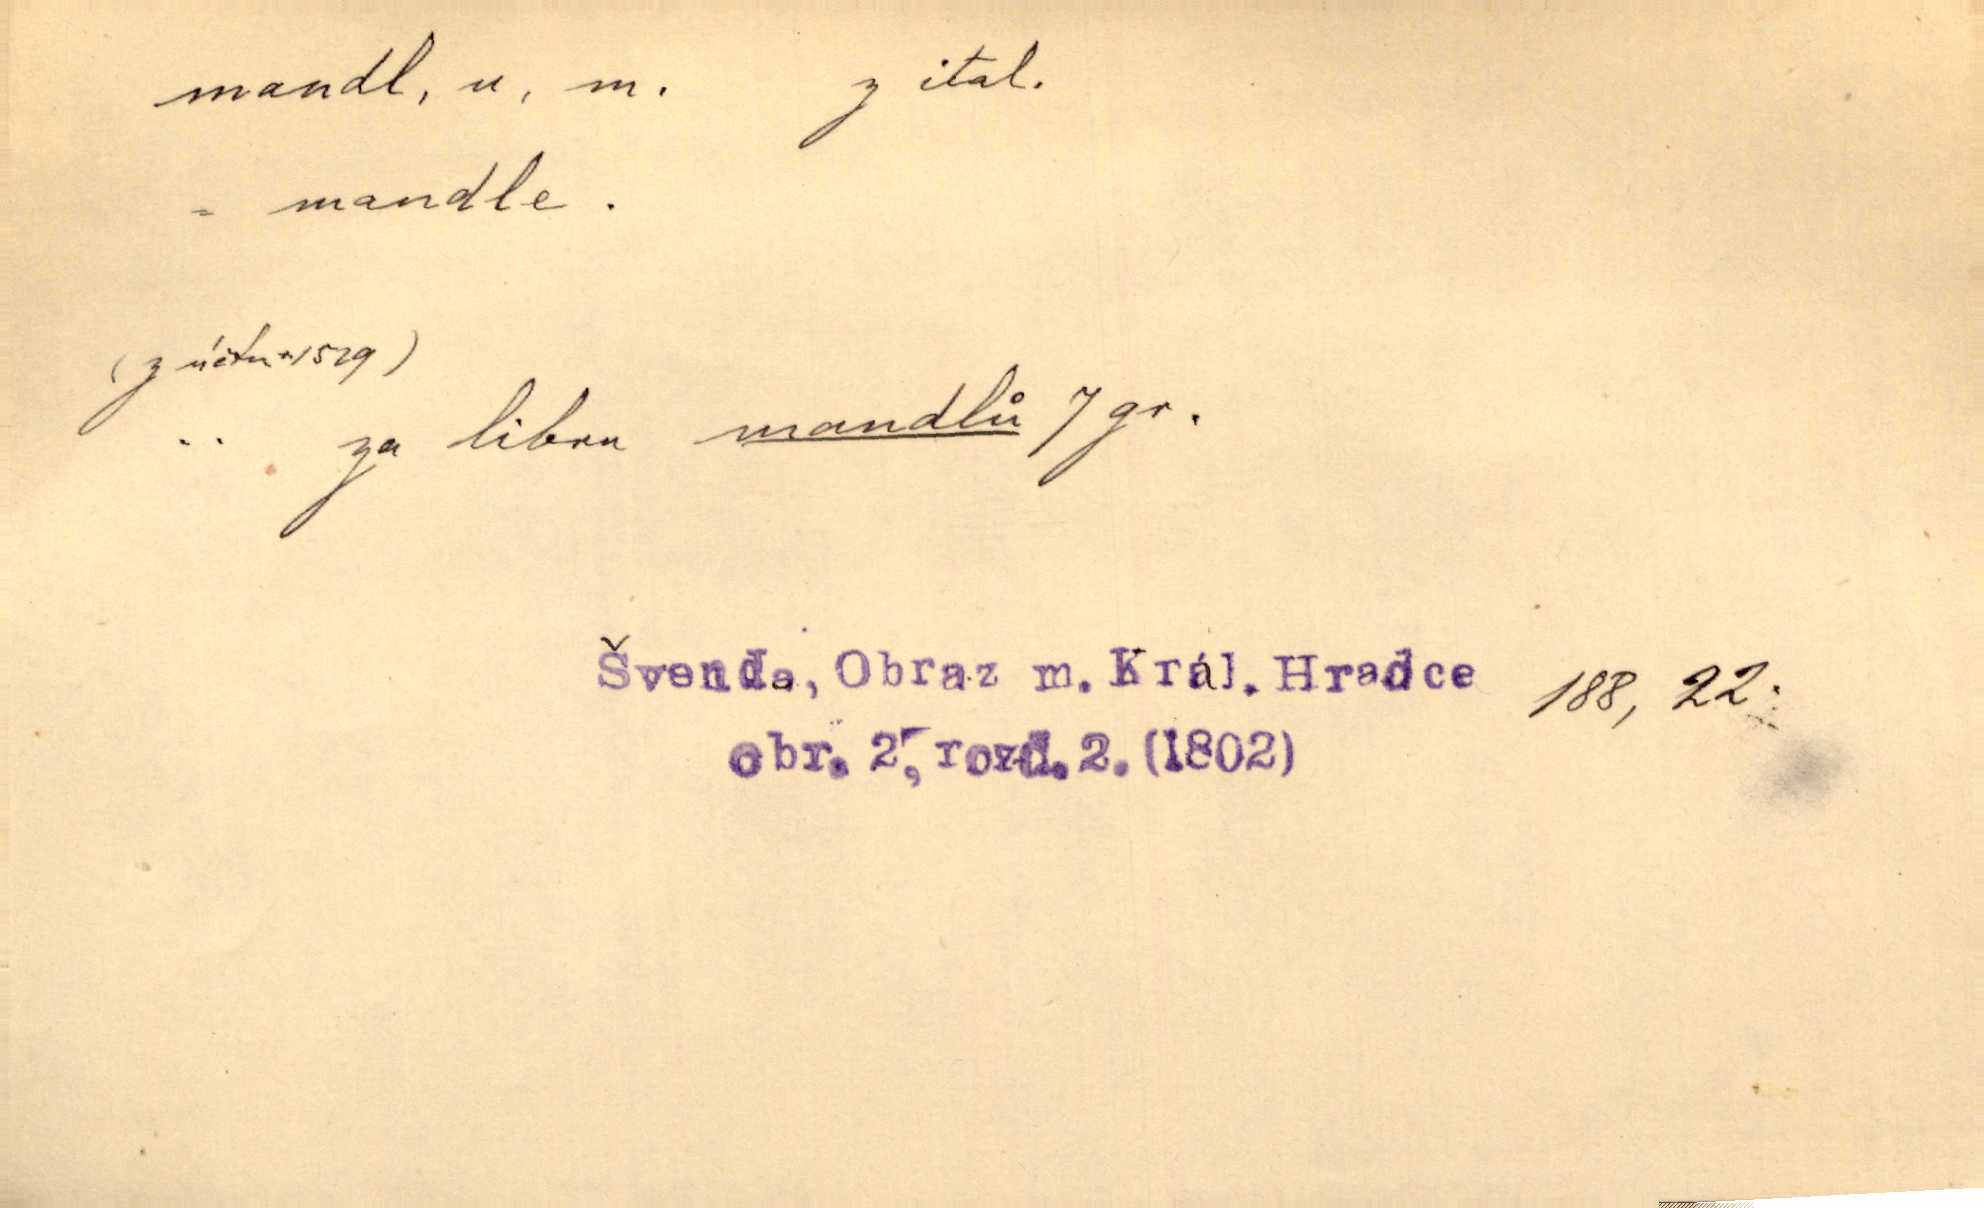 mandl, u, m. z ital.
= mandle.
(z účtu r. 1529)
.. za libru mandlů 7 gr.
Švenda, Obraz m. Král. Hradce 188, 22.
obr. 2, rozd. 2. (1802)